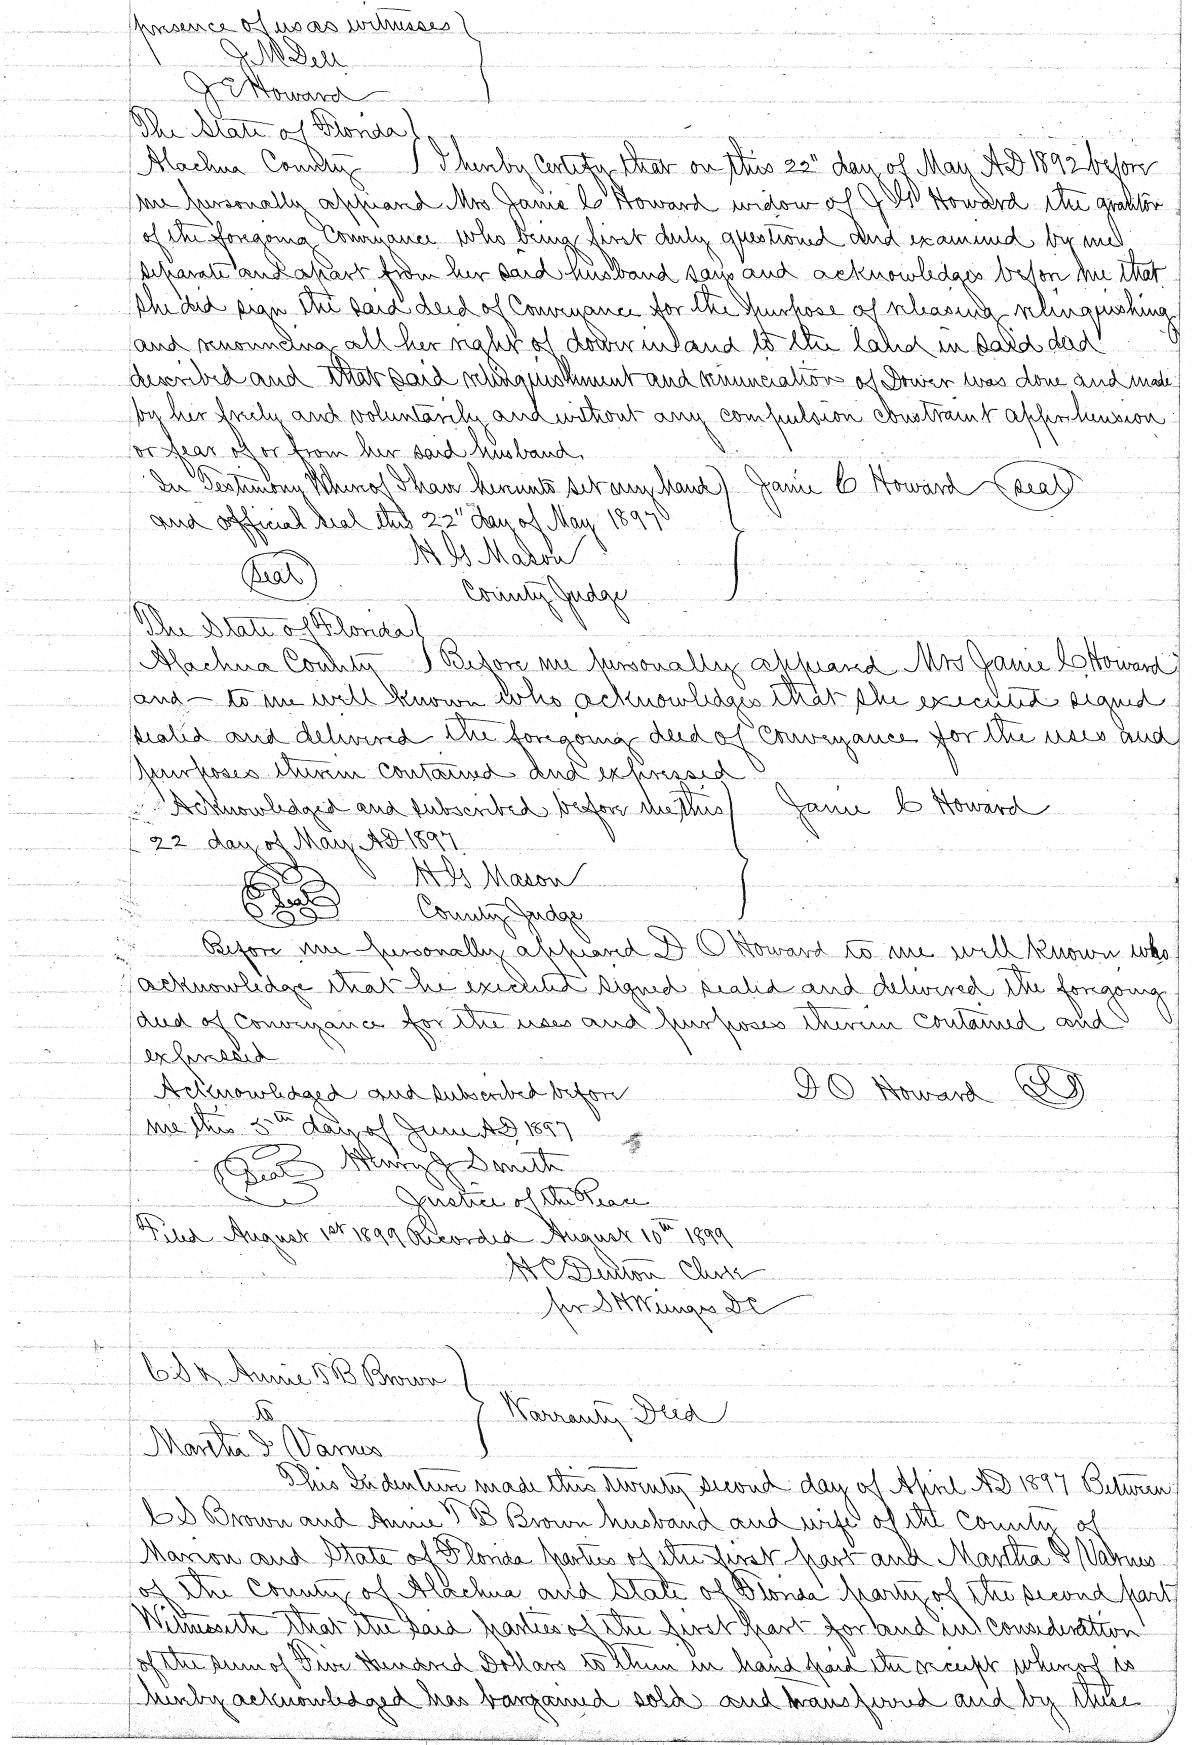 presence of us as witnesses
J M Dell
J E Howard
The State of Florida
Alachua County I hereby Certify that on this 22" day of May AD 1892 before
me personally appeard Mrs Janie C Howard widow of J W Howard the grantor
of the foregoing Conveyance who being first duly questioned and examined by me
separate and apart from her said husband says and acknowledges before me that
she did sign the said deed of Conveyance for the purpose of releasing relinquishing
and renouncing all her right of dower in and to the land in said deed
described and that said relinquishment and renunciation of Dower was done and made
by her freely and voluntarily and without any compulsion constraint apprehension
or fear of or from her said husband.
In Testimony Whereof I have hereunto set my hand Janie C Howard Seal
and official seal this 22" day of May 1897
H G Mason
Seal
County Judge
The State of Florida
Alachua County Before me personally appeared Mrs Janie C Howard
and — to me well known who acknowledges that she executed signed
sealed and delivered the foregoing deed of Conveyance for the uses and
purposes therein contained and expressed
Acknowledged and subscribed before me this Janie C Howard
22 day of May AD 1897
H G Mason
Seal County Judge
Before me personally appeared D O Howard to me well known who
acknowledge that he executed signed sealed and delivered the foregoing
deed of conveyance for the uses and purposes therein contained and
expressed
Acknowledged and subscribed before D O Howard LS
me this 5th day of June AD 1897
Seal Henry J Smith
Justice of the Peace
Filed August 1st 1899 Recorded August 10th 1899
H C Denton Clerk
per S H Wienges DC
C S & Annie T B Brown
to Warranty Deed
Martha I Varnes
This Indenture made this twenty second day of April AD 1897 Between
C S Brown and Annie T B Brown husband and wife of the County of
Marion and State of Florida parties of the first part and Martha I Varnes
of the County of Alachua and State of Florida party of the second part
Witnesseth that the said parties of the first part for and in consideration
of the sum of Five Hundred Dollars to them in hand paid the receipt whereof is
hereby acknowledged has bargained sold and transferred and by these